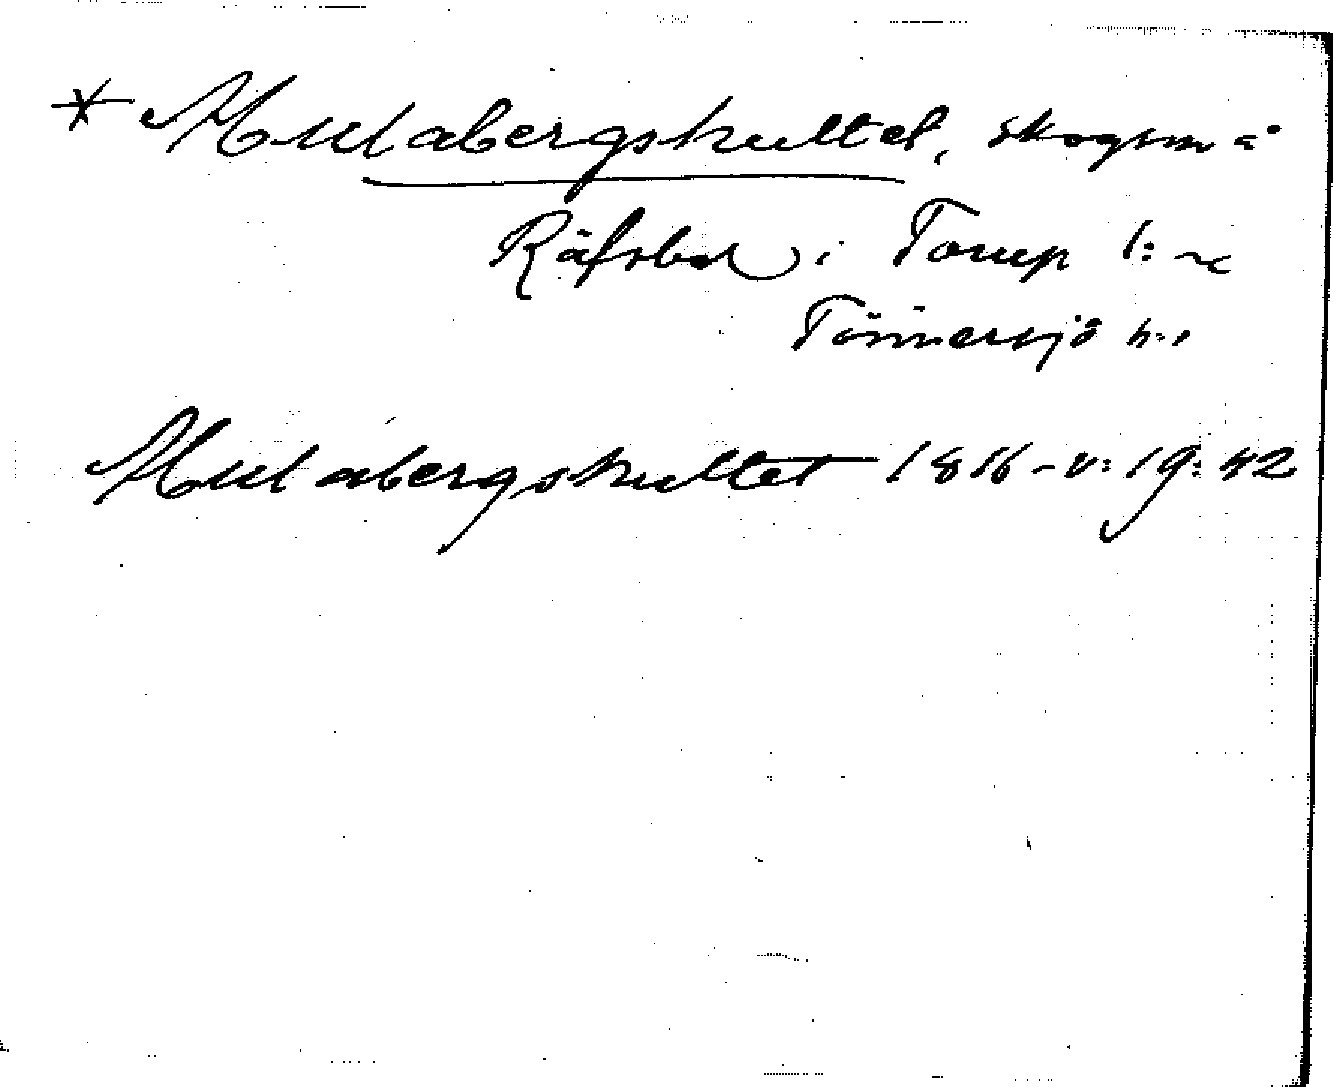 * Mulabergskullet, skogsm å
Räfsbol i Torup s:n
Tönnersjö h:d
Mulabergskullet 1816 - v: 19: 42